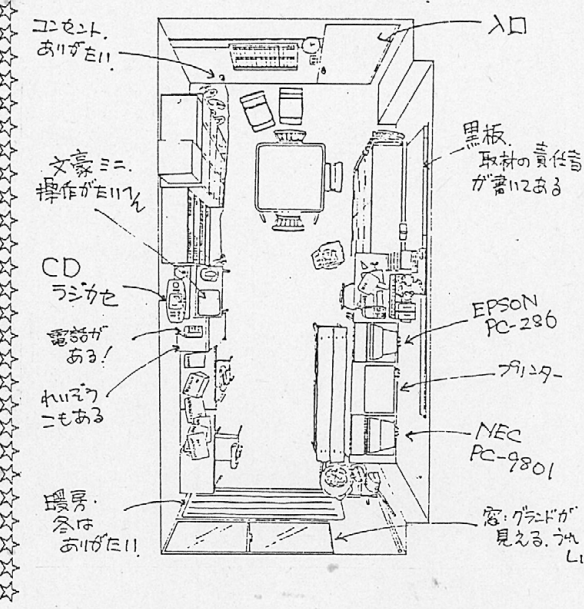 コンセント.
ありがたい.
入口
黒板.
取材の責任者
が書いてある
文豪ミニ.
操作がたいへん
CD
ラジカセ
電話が
ある!
れいぞう
こもある
EPSON
PC-286
プリンター
NEC
PC-9801
暖房.
冬は
ありがたい.
窓:グランドが
見える.うれ
しい